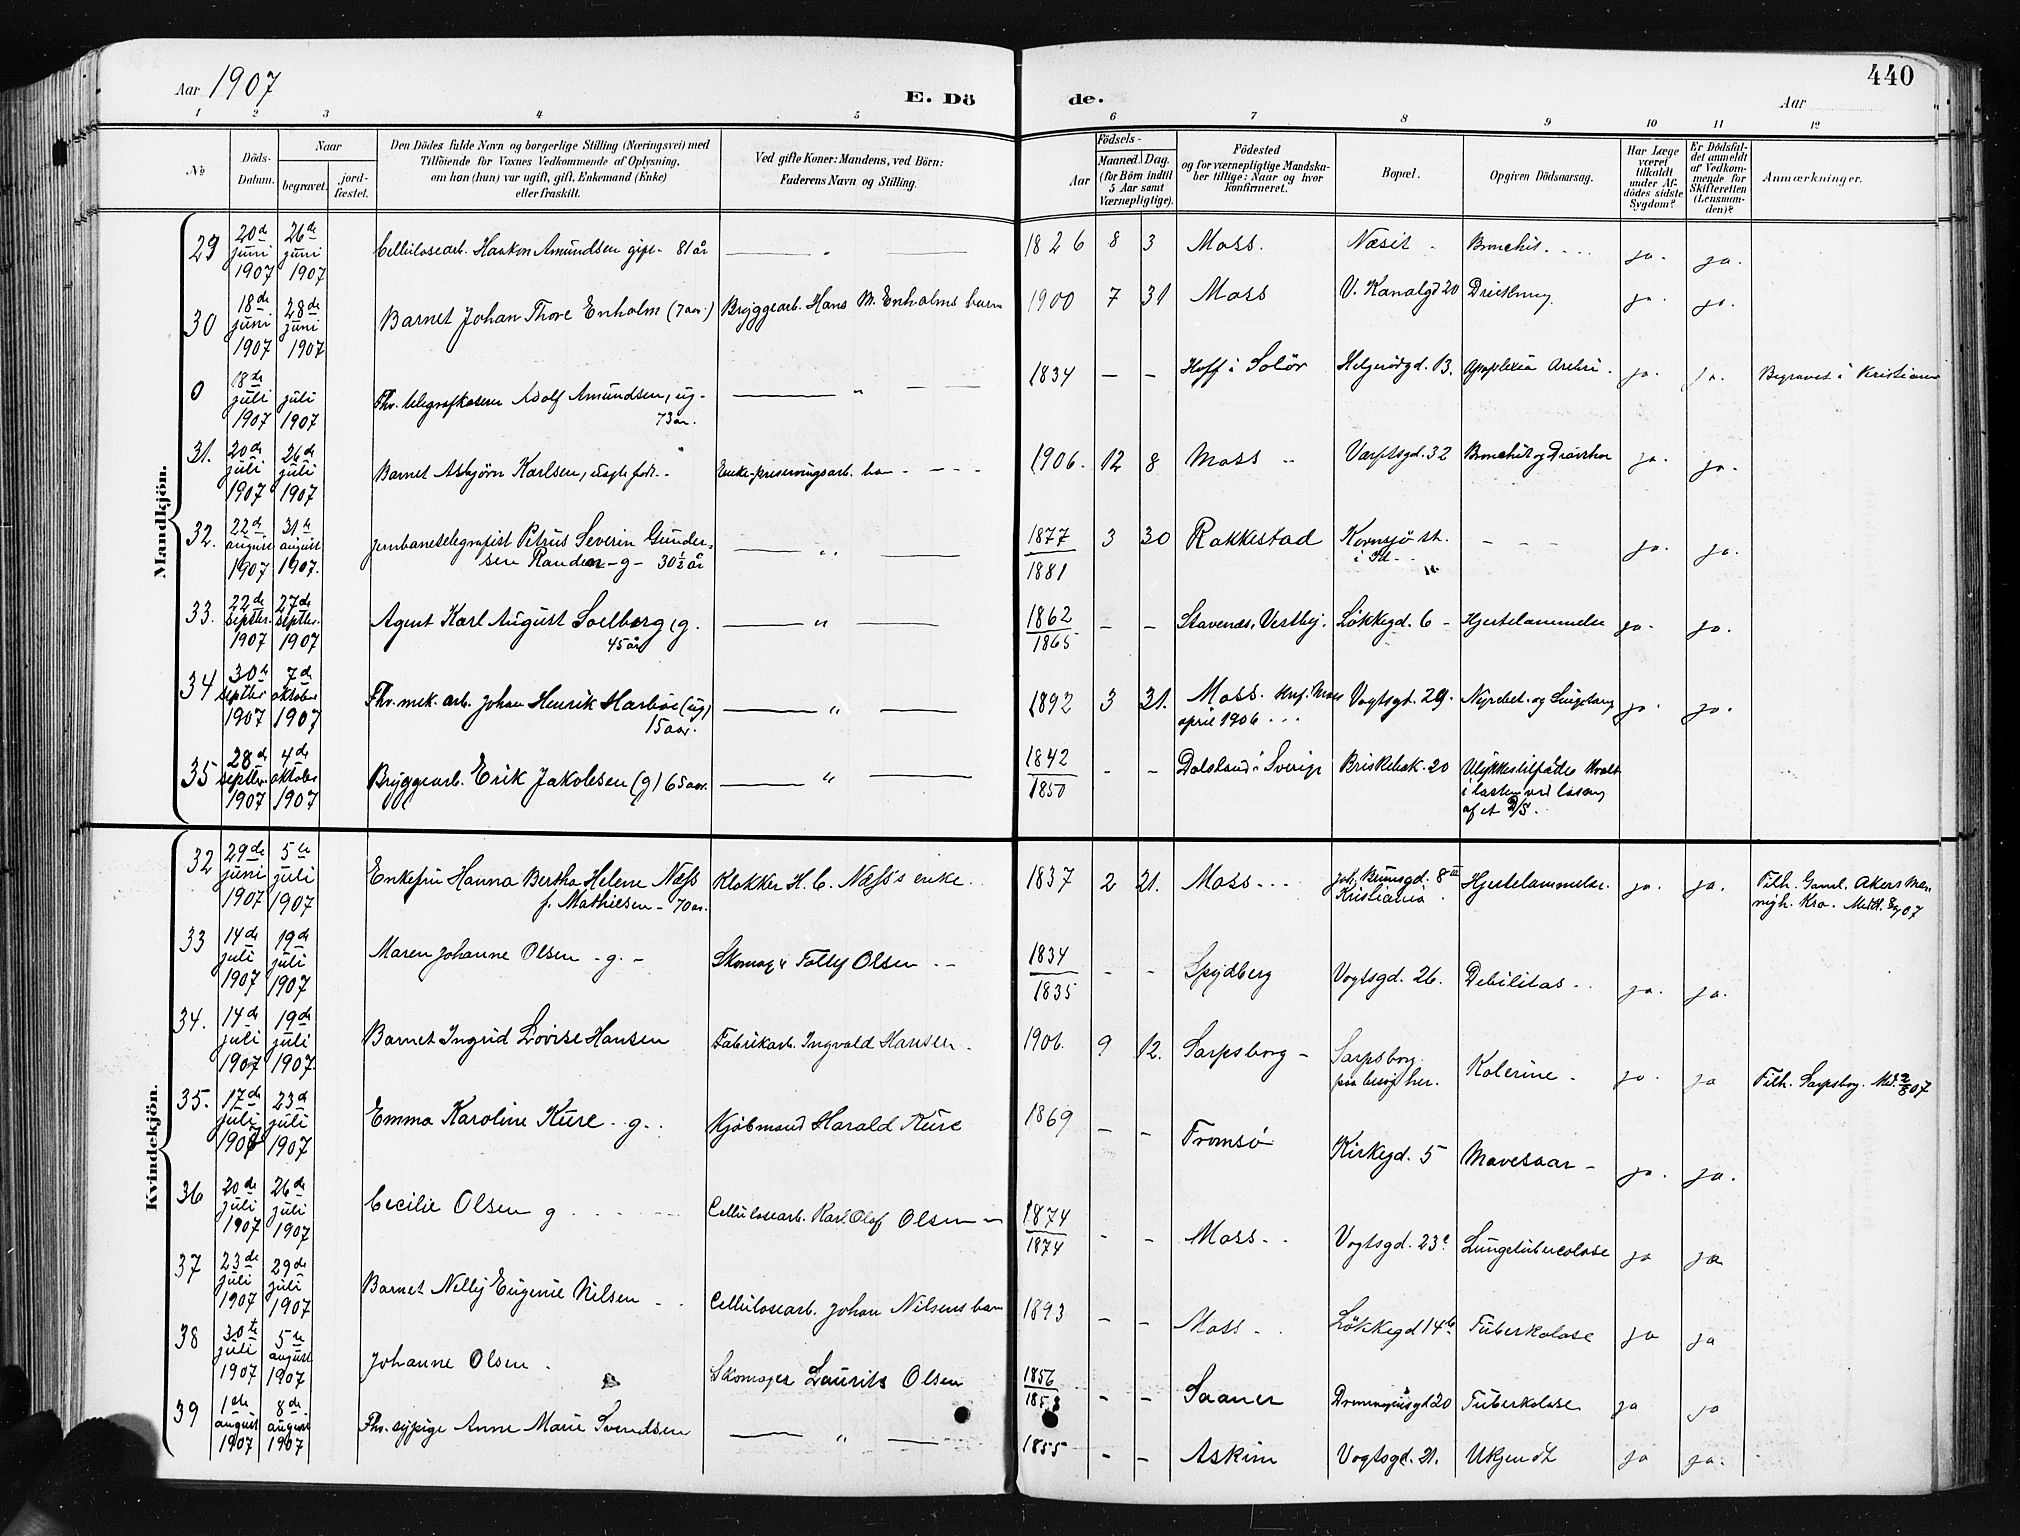 Aar 1907
E. Dö de.
440
Aar
1 2 3 4 5 6 7 8 9 10 11 12
No
Döds-Datum.
Naar
begravet.
jord-fæstet.
Den Dödes fulde Navn og borgerlige Stilling (Næringsvei) med
Tilföiende for Voxnes Vedkommende af Oplysning,
om han (hun) var ugift, gift, Enkemand (Enke)
eller fraskilt.
Ved gifte Koner: Mandens, ved Börn:
Faderens Navn og Stilling.
Födsels-
Aar
Maaned. Dag.
(for Börn indtil
5 Aar samt
Værnepligtige).
Födested
og for værnepligtige Mandska-
ber tillige: Naar og hvor
konfirmeret.
Bopæl.
Opgiven Dödsaarsag.
Har Læge
været
tilkaldt
under Af-
dödes sidste
Sygdom?
Er Dödsfal-
det anmeldt
af Vedkom-
mende for
Skifteretten
(Lensman-
den)?
Anmærkninger.
Mandkjön.
29 20de juni 1907 26de juni 1907 Cellulosearb. Haakon Amundsen gift - 81 år — " — 1826 8 3 Moss. Næsit - Bronchit. ja. ja.
30 18de juni 1907 28de juni 1907 Barnet Johan Thore Enholm (7 aar.) Bryggearb. Hans M. Enholms barn 1900 7 31 Moss V. Kanalgd 20 Drukning. ja. ja.
0 18de juli 1907 juli 1907 Fhv. telegrafkasserer Adolf Amundsen, ug. 73 år. — " — 1834 — — Hoff i Solör Helgerödgd. 13. Apoplexia ja. ja. Begravet i Kristiania
31. 20de juli 1907 26de juli 1907 Barnet Asbjørn Karlsen, uægte født. barn 1906. 12 8 Moss Varftsgd. 32 Bronchit og ja. ja.
32. 22de august 1907 31te august 1907. Jernbanetelegrafist Petrus Severin Gunder-
sen Randem - g - 30½ år — " — 1877 / 1881 3 30 Rakkestad Kornsjø st.
i Id. - - - - ja. ja.
33. 22de septbr. 1907 27de septbr. 1907 Agent Karl August Solberg, g.
45 år — " — 1862 / 1865 - - Stavenæs, Vestby. Løkkegd. 6 - Hjertelammelse ja. ja.
34 30te septbr 1907 7de oktober 1907 Fhv. mek. arb. Johan Henrik Harböe (ug)
15 aar. — " — 1892 3 31. Moss. Knf. Moss
april 1906 Vogtsgd. 29. Nyrebet. og ja. ja.
35 28de septbr. 1907 4de oktober 1907 Bryggearb. Erik Jakobsen (g) 65 aar. — " — 1842 / 1850 - - Dalsland i Sverige Briskebak. 20 Ulykkestilfælde Kvalt
i lasten ved losning
af et D/S.
Kvindekjön.
32 29de juni 1907 5te juli 1907 Enkefru Hanna Bertha Helene Næss
f. Mathiesen - 70 år. Klokker H. C. Næss's enke. 1837 2 21. Moss Joh. Brunsgd. 8 III
Kristiania Hjertelammelse. ja. ja. Tilh. Gaml. Akers Me-
nigh. Kra. Medd. 07
33 14de juli 1907 19de juli 1907 Maren Johanne Olsen - g. - Skomag. Tolly Olsen 1834 / 1835 - - Spydberg Vogtsgd. 26. Debilitas ja. ja.
34. 14de juli 1907 19de juli 1907. Barnet Ingrid Lovise Hansen Fabrikarb. Ingvald Hansen. 1906. 9 12. Sarpsborg - Sarpsborg.
paa besøg her. Kolerine - ja. ja Tilh. Sarpsbog. Med. 07
35. 17de juli 1907 23de juli 1907 Emma Karoline Kure - g. Kjøbmand Harald Kure 1869 - - Tromsö Kirkegd. 5 Mavesaar - ja. ja.
36 20de juli 1907 26de juli 1907 Cecilie Olsen g Cellulosearb. Karl Olaf Olsen 1874 / 1874 - - Moss Vogtsgd. 23c Lungetuberculose ja ja
37 23de juli 1907 29de juli 1907 Barnet Nelly Eugenie Nilsen Cellulosearb. Johan Nilsens barn 1893 - - Moss Løkkegd 14b Tuberkolose ja ja
38 30te juli 1907 5te august 1907 Johanne Olsen. Skomager Laurits Olsen 1856 / 1858 - - Saaner Dronningensgd 20 Tuberkolose ja ja
39 1ste august 1907 8de august 1907 Fhv. sypige Anne Marie Svendsen — " — 1855 - - Askim Vogtsgd. 21. Ukjendt ja ja.